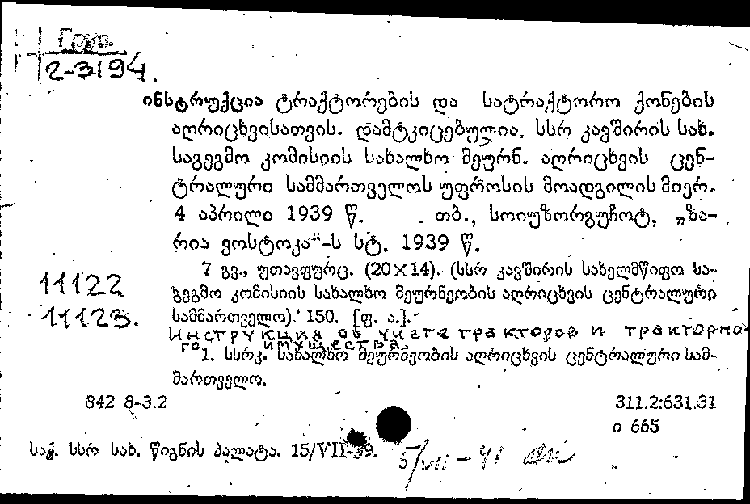 2-3194.
ინსტრუქცია ტრაქტორების და სატრაქტორო ქონების
აღრიცხვისათვის. დამტკიცებულია. სსრ კავშირის სახ.
საგეგმო კომისიის სახალხო მეურნ. აღრიცხვის ცენ-
ტრალური სამმართველოს უფროსის მოადგილის მიერ.
4 აპრილი 1939 წ. თბ., სოიუზორგუჩოტ, „ზა-
რია ვოსტოკა"-ს სტ. 1939 წ.
7 გვ., უთავფურც. (20×14). (სსრ კავშირის სახელმწიფო სა-
გეგმო კომისიის სახალხო მეურნეობის აღრიცხვის ცენტრალური
სამმართველო). 150. [ფ. ა.].
11122
11123.
Инструкция об учете тракторов и тракторно-
го имущества.
1. სსრკ. სახალხო მეურნეობის აღრიცხვის ცენტრალური სამ-
მართველო.
842 8-3.2 311.2:631.31
ი 665
საქ. სსრ სახ. წიგნის პალატა. 15/VII-39. 5/VII-41